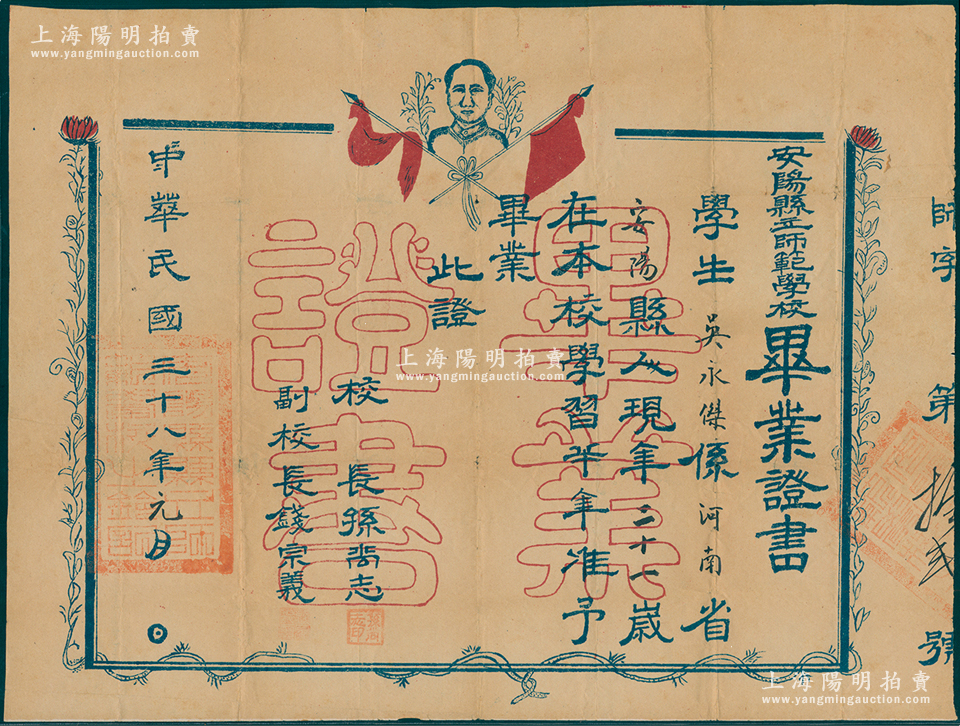 上海陽明拍賣
www.yangmingauction.com
師字第拾弍號
安陽縣立師範學校畢業證書
學生吳永傑係河南省
安陽縣人現年二十七歲
在本校學習半年准予
畢業
此證
校長孫
志
副校長錢宗義
中華民國三十八年元月
日
畢業
證書
上海陽明拍賣
www.yangmingauction.com
上海陽明拍賣
www.yangmingauction.com